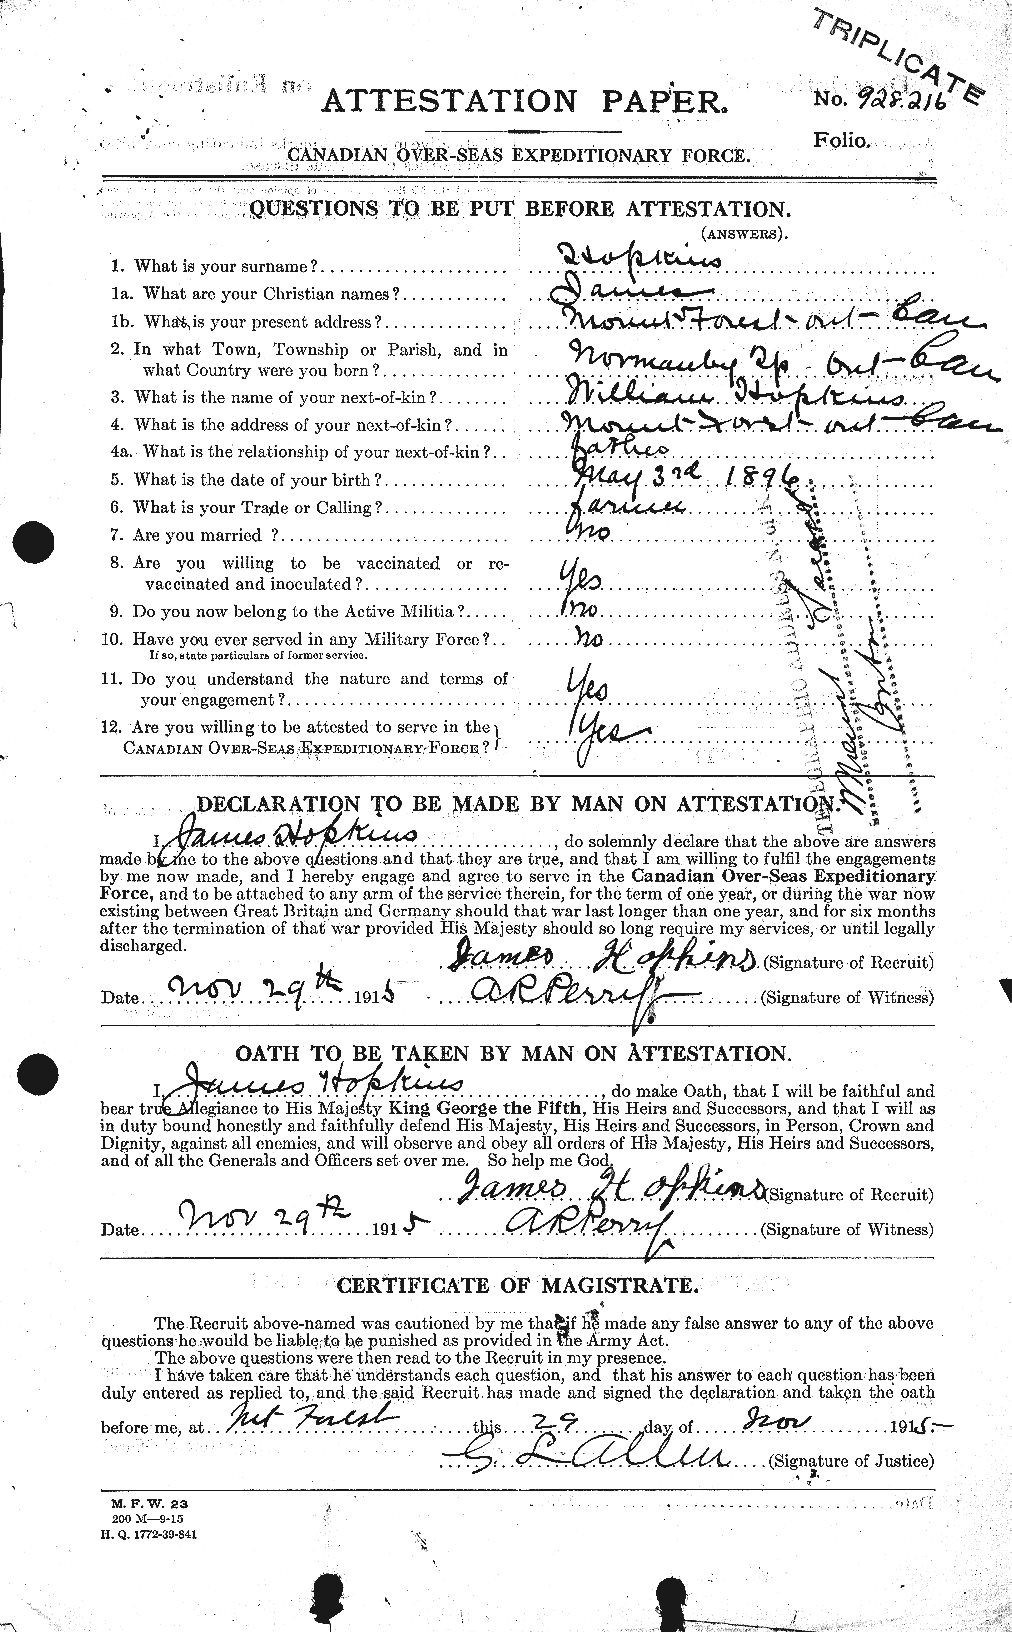 TRIPLICATE
ATTESTATION PAPER.
No. 928.216
Folio.
CANADIAN OVER-SEAS EXPEDITIONARY FORCE.
QUESTIONS TO BE PUT BEFORE ATTESTATION.
(ANSWERS).
1. What is your surname? Hopkins
1a. What are your Christian names? James
1b. What is your present address? Mount Forest - Ont - Can
2. In what Town, Township or Parish, and in
what Country were you born? Normanby Tp. Ont - Can
3. What is the name of your next-of-kin? William Hopkins
4. What is the address of your next-of-kin? Mount Forest - Ont - Can
4a. What is the relationship of your next-of-kin? father
5. What is the date of your birth? May 3rd 1896
6. What is your Trade or Calling? farmer
7. Are you married? no
8. Are you willing to be vaccinated or re-
vaccinated and inoculated? Yes
9. Do you now belong to the Active Militia? no
10. Have you ever served in any Military Force? no
If so, state particulars of former service.
11. Do you understand the nature and terms of
your engagement? Yes
12. Are you willing to be attested to serve in the
CANADIAN OVER-SEAS EXPEDITIONARY FORCE? Yes
TELEGRAPHIC ADDRESS
Mount Forest
Ont
DECLARATION TO BE MADE BY MAN ON ATTESTATION.
I, James Hopkins, do solemnly declare that the above are answers
made by me to the above questions and that they are true, and that I am willing to fulfil the engagements
by me now made, and I hereby engage and agree to serve in the Canadian Over-Seas Expeditionary
Force, and to be attached to any arm of the service therein, for the term of one year, or during the war now
existing between Great Britain and Germany should that war last longer than one year, and for six months
after the termination of that war provided His Majesty should so long require my services, or until legally
discharged.
James Hopkins (Signature of Recruit)
Date Nov 29th 1915 A R Perry (Signature of Witness)
OATH TO BE TAKEN BY MAN ON ATTESTATION.
I, James Hopkins, do make Oath, that I will be faithful and
bear true Allegiance to His Majesty King George the Fifth, His Heirs and Successors, and that I will as
in duty bound honestly and faithfully defend His Majesty, His Heirs and Successors, in Person, Crown and
Dignity, against all enemies, and will observe and obey all orders of His Majesty, His Heirs and Successors,
and of all the Generals and Officers set over me. So help me God.
James Hopkins (Signature of Recruit)
Date Nov 29th 1915 A R Perry (Signature of Witness)
CERTIFICATE OF MAGISTRATE.
The Recruit above-named was cautioned by me that if he made any false answer to any of the above
questions he would be liable to be punished as provided in the Army Act.
The above questions were then read to the Recruit in my presence.
I have taken care that he understands each question, and that his answer to each question has been
duly entered as replied to, and the said Recruit has made and signed the declaration and taken the oath
before me, at Mt Forest this 29 day of Nov 1915-
G L Allen (Signature of Justice)
M. F. W. 23
200 M—9-15
H. Q. 1772-39-841